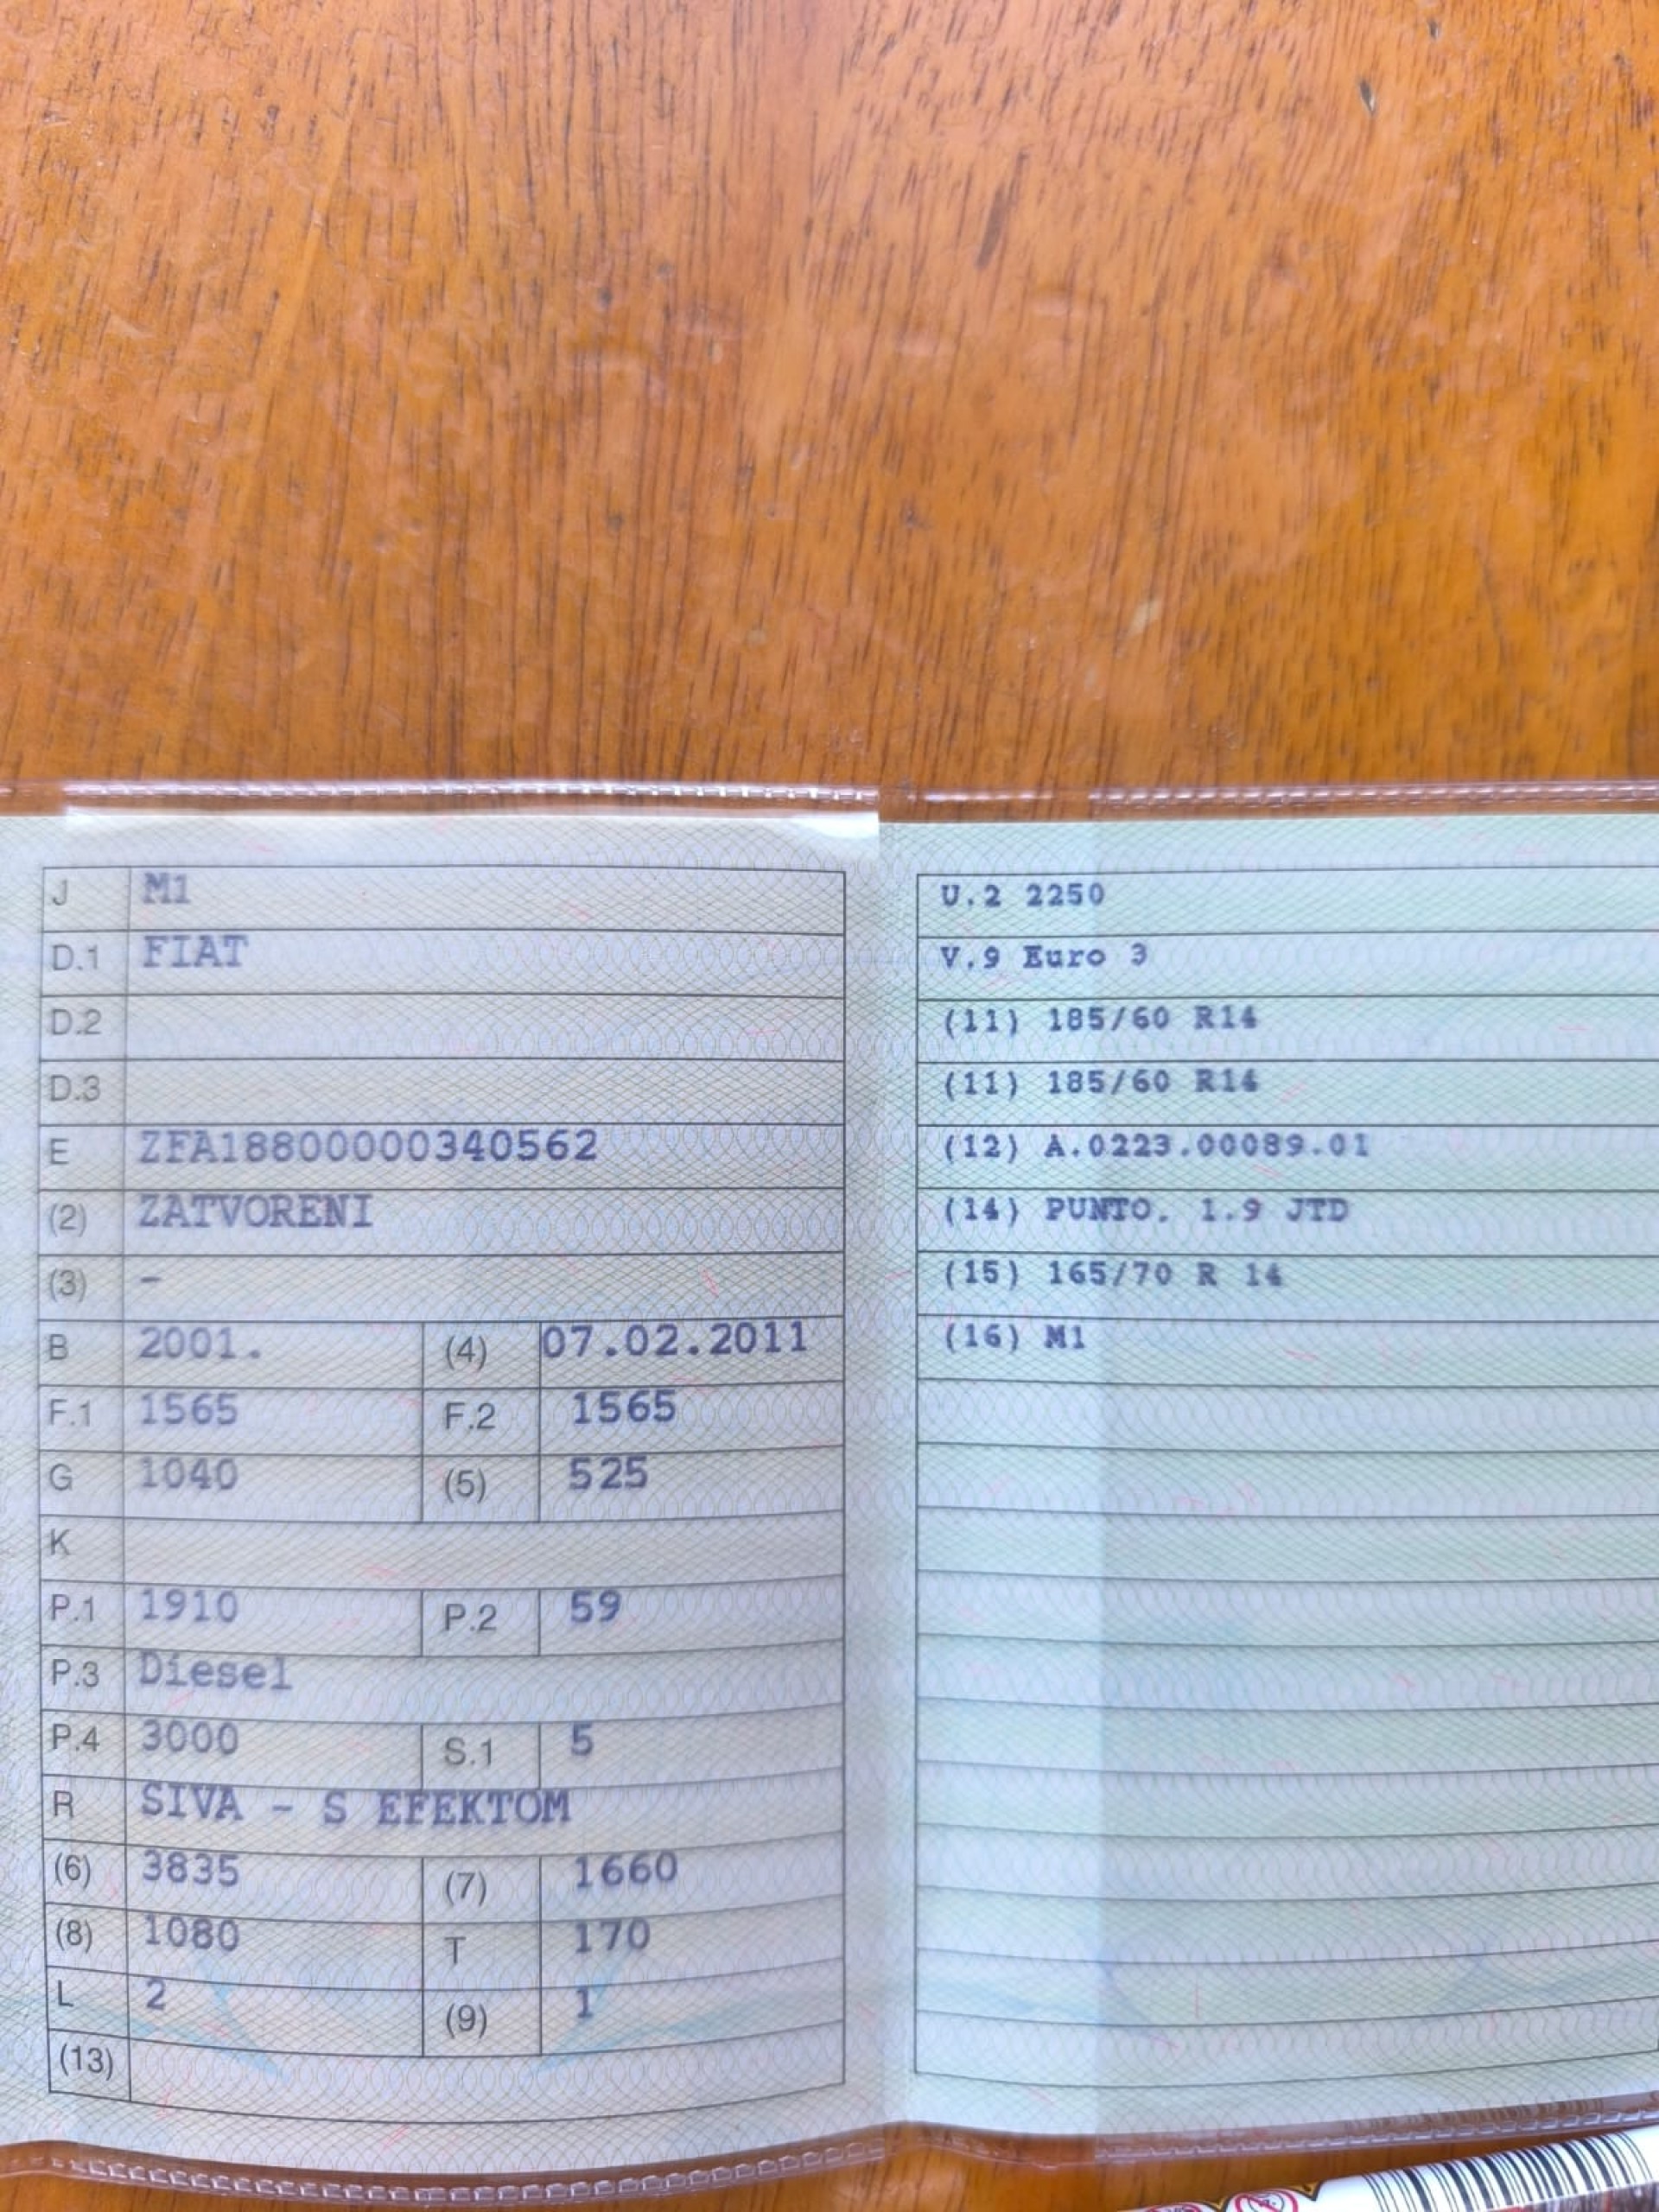 J M1
D.1 FIAT
D.2
D.3
E ZFA18800000340562
(2) ZATVORENI
(3) -
B 2001. (4) 07.02.2011
F.1 1565 F.2 1565
G 1040 (5) 525
K
P.1 1910 P.2 59
P.3 Diesel
P.4 3000 S.1 5
R SIVA - S EFEKTOM
(6) 3835 (7) 1660
(8) 1080 T 170
L 2 (9) 1
(13)
U.2 2250
V.9 Euro 3
(11) 185/60 R14
(11) 185/60 R14
(12) A.0223.00089.01
(14) PUNTO. 1.9 JTD
(15) 165/70 R 14
(16) M1